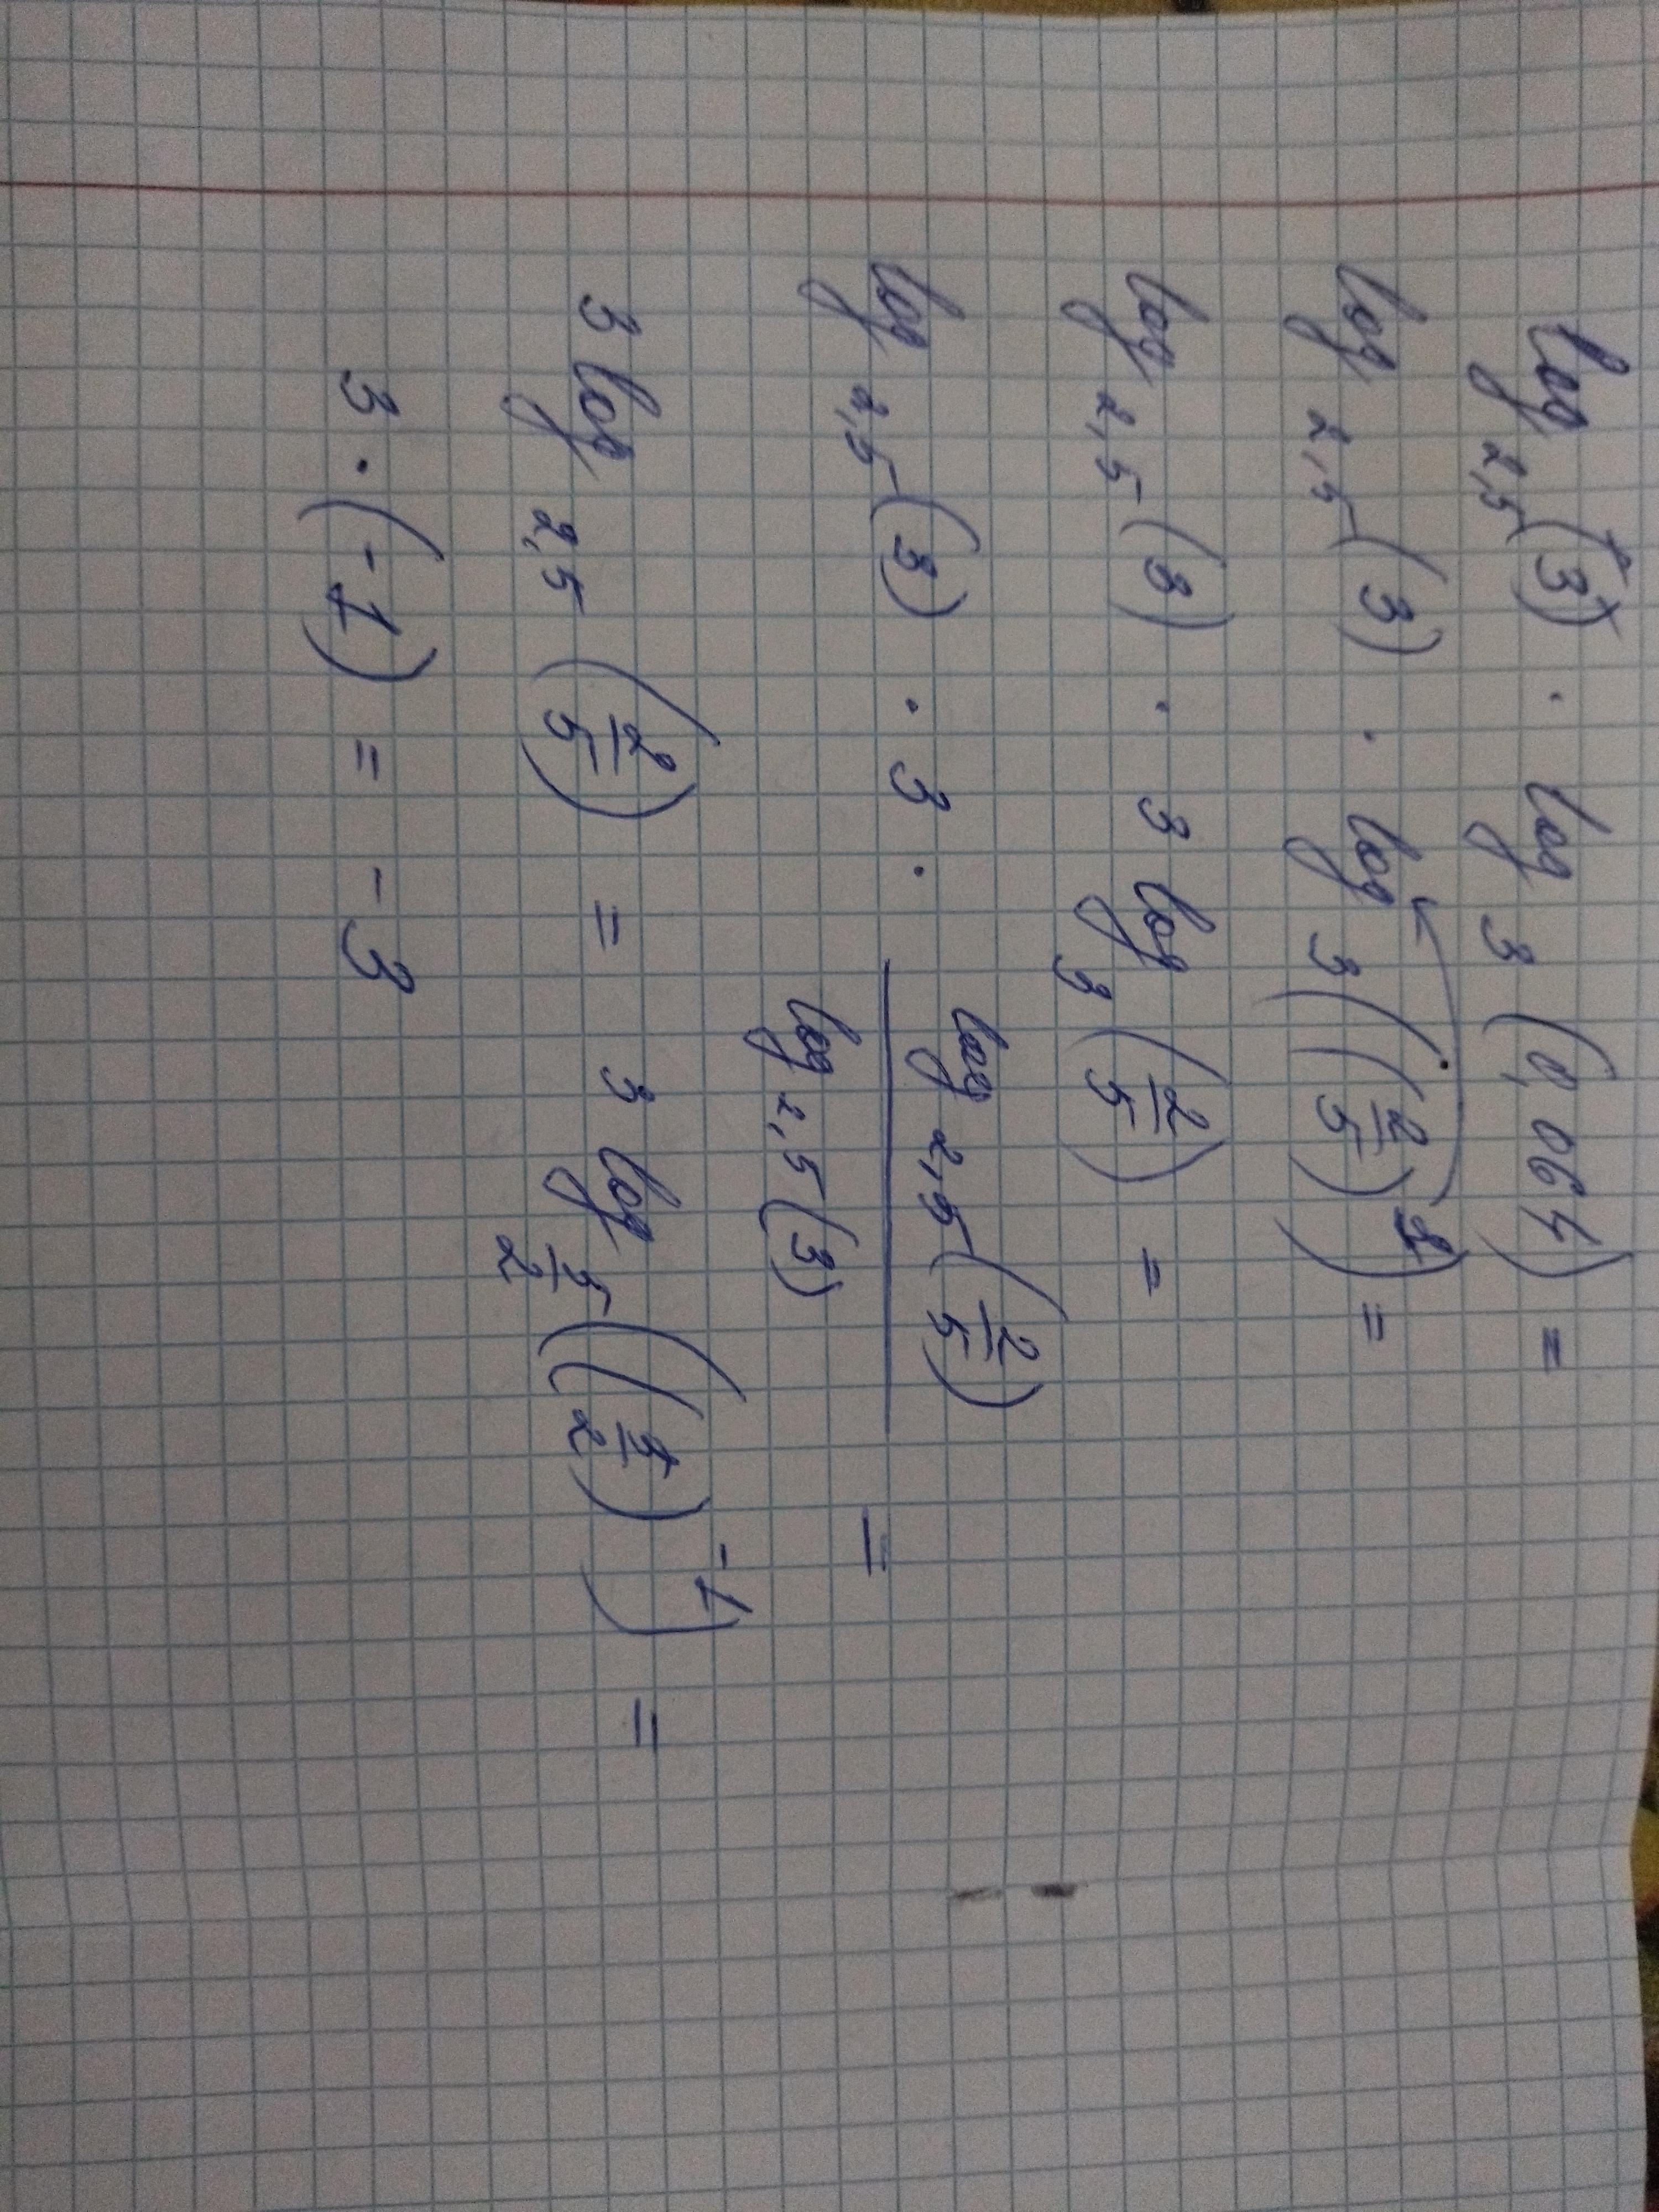 log 2,5 (3) · log 3 (0,064) =
log 2,5 (3) · log 3 ((2/5)³) =
log 2,5 (3) · 3 log 3 (2/5) =
log 2,5 (3) · 3 · log 2,5 (2/5) / log 2,5 (3) =
3 log 2,5 (2/5) = 3 log 5/2 ((5/2)⁻¹) =
3 · (-1) = -3